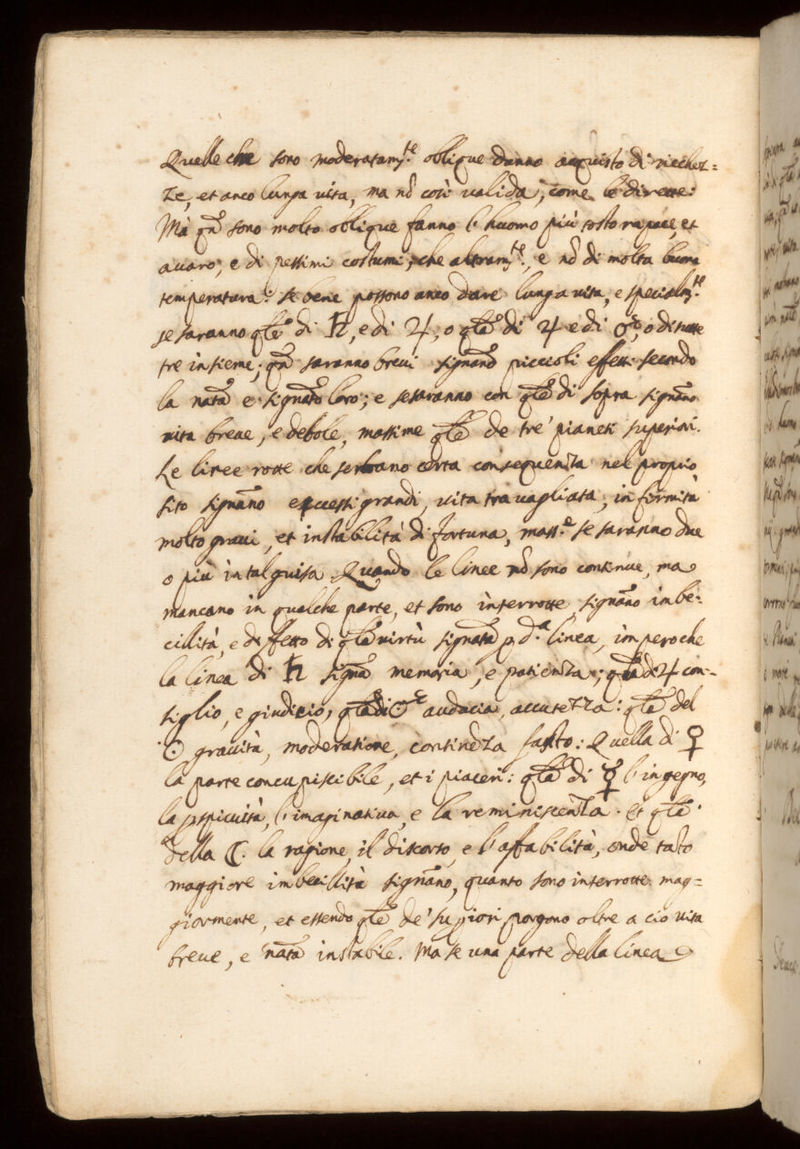 Quelle che sono moderatam.te oblique danno acquisto di ricchez=
ze, et anco lunga vita, ma nõ così valida, come le dirette:
Mà qñ sono molto oblique fanno l'huomo più tosto rapace, et
avaro, e di pessimi costumi, che altram.te, e nõ di molta buona
temperatura: se bene possono anco dare lunga vita, e specialm.te
se saranno qlle di ♄, e di ♃, o qlle di ♃ e di ♂, o di tutte
tre insieme; qñ saranno brevi signano piccioli effetti secondo
la natã e signato loro; e se saranno con qlle di sopra signano
vita breve, e debole, massime qlle de tre pianeti superiori.
Le linee rotte che serbano certa consequenza nel proprio
sito signano eccessi grandi, vita travagliata, infirmità
molto gravi, et instabilità di fortuna, mass.e se saranno due
o più in tal guisa. Quando le linee nõ sono continue, ma
mancano in qualche parte, et sono interrotte, signano imbe=
cillità, e diffetto di qlla virtù signata p d.a linea, imperoche
la linea di ♄ signa memoria, e patienza; qlla di ♃ con=
siglio, e giudicio, qlla di ♂ audacia, accutezza: qlla del
☉ gravità, moderatione, continẽza fasto: Quella di ♀
la parte concupiscibile, et i piaceri: qlla di ☿ l'ingegno,
la pspicuità, l'imaginativa, e la reminiscenza. Et qlla
della ☾. la ragione, il discorso, e l'affabilità, onde tãto
maggiore imbecillità signano, quanto sono interrotte mag=
giormente, et essendo qlle de' supiori porgono oltre a cio vita
breve, e natã instabile. Ma se una parte della linea